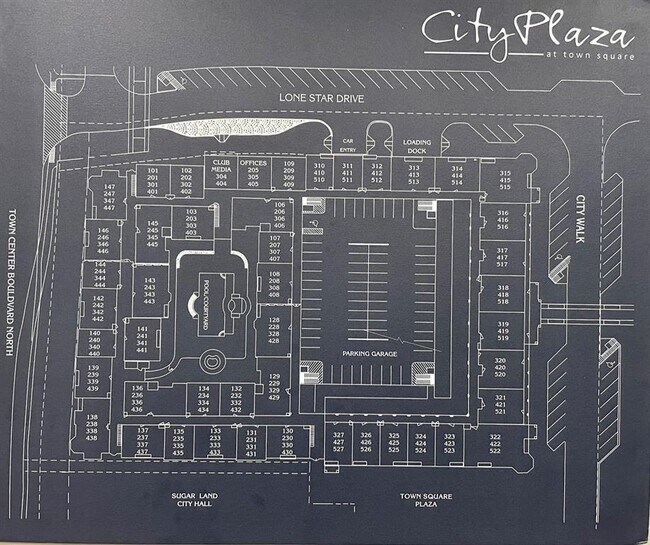 City Plaza
at town square
LONE STAR DRIVE
CAR
ENTRY
LOADING
DOCK
CITY WALK
TOWN CENTER BOULDVARD NORTH
147
247
347
447
101
201
301
401
102
202
302
402
CLUB
MEDIA
304
404
OFFICES
205
305
405
109
209
309
409
310
410
510
311
411
511
312
412
512
313
413
513
314
414
514
315
415
515
146
246
346
446
145
245
345
445
103
203
303
403
106
206
306
406
316
416
516
107
207
307
407
317
417
517
144
244
344
444
143
243
343
443
108
208
308
408
318
418
518
142
242
342
442
POOL/COURTYARD
128
228
328
428
319
419
519
141
241
341
441
140
240
340
440
PARKING GARAGE
320
420
520
139
239
339
439
129
229
329
429
136
236
336
436
134
234
334
434
132
232
332
432
321
421
521
138
238
338
438
137
237
337
437
135
235
335
435
133
233
333
433
131
231
331
431
130
230
330
430
327
427
527
326
426
526
325
425
525
324
424
524
323
423
523
322
422
522
SUGAR LAND
CITY HALL
TOWN SQUARE
PLAZA